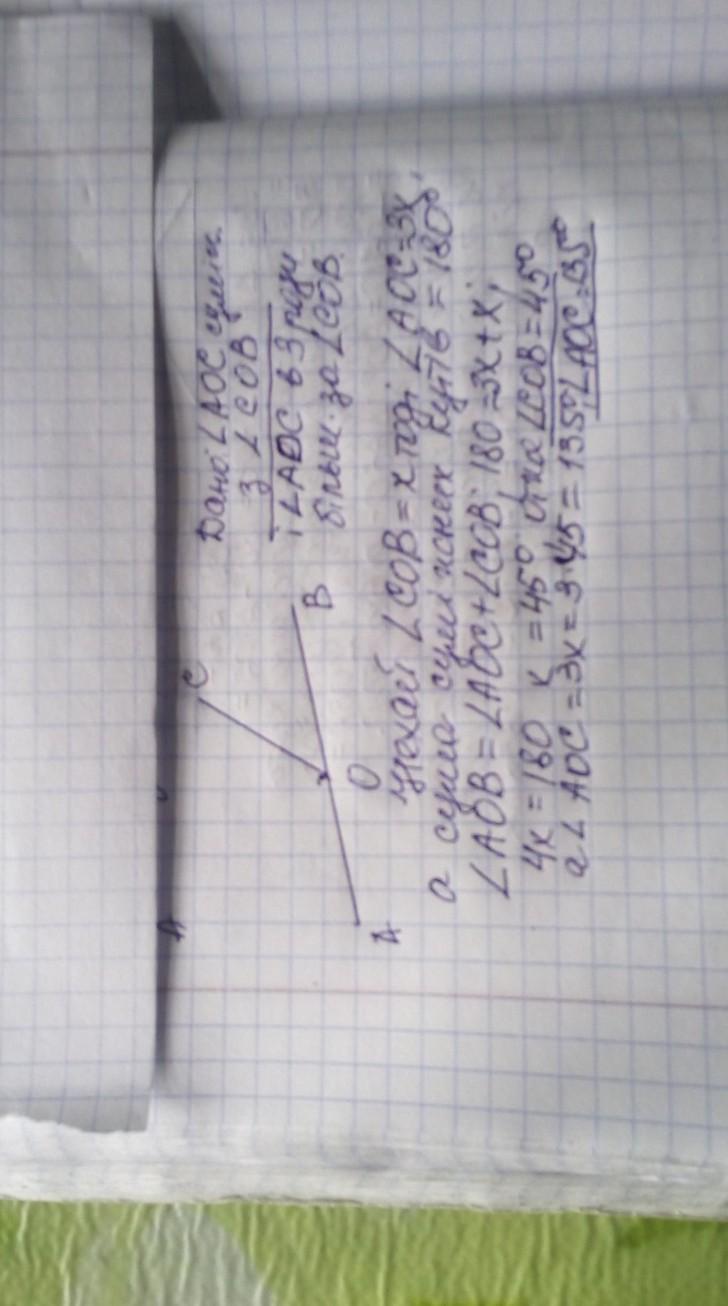 A
C
B
O
A
Дано: ∠AOC суміж.
з ∠COB
і ∠AOC в 3 рази
більш. за ∠COB.
Нехай ∠COB = x тоді ∠AOC = 3x,
а сума суміжних кутів = 180°,
∠AOB = ∠AOC + ∠COB; 180 = 3x + x;
4x = 180 x = 45° отже ∠COB = 45°
а ∠AOC = 3x = 3·45 = 135° ∠AOC = 135°